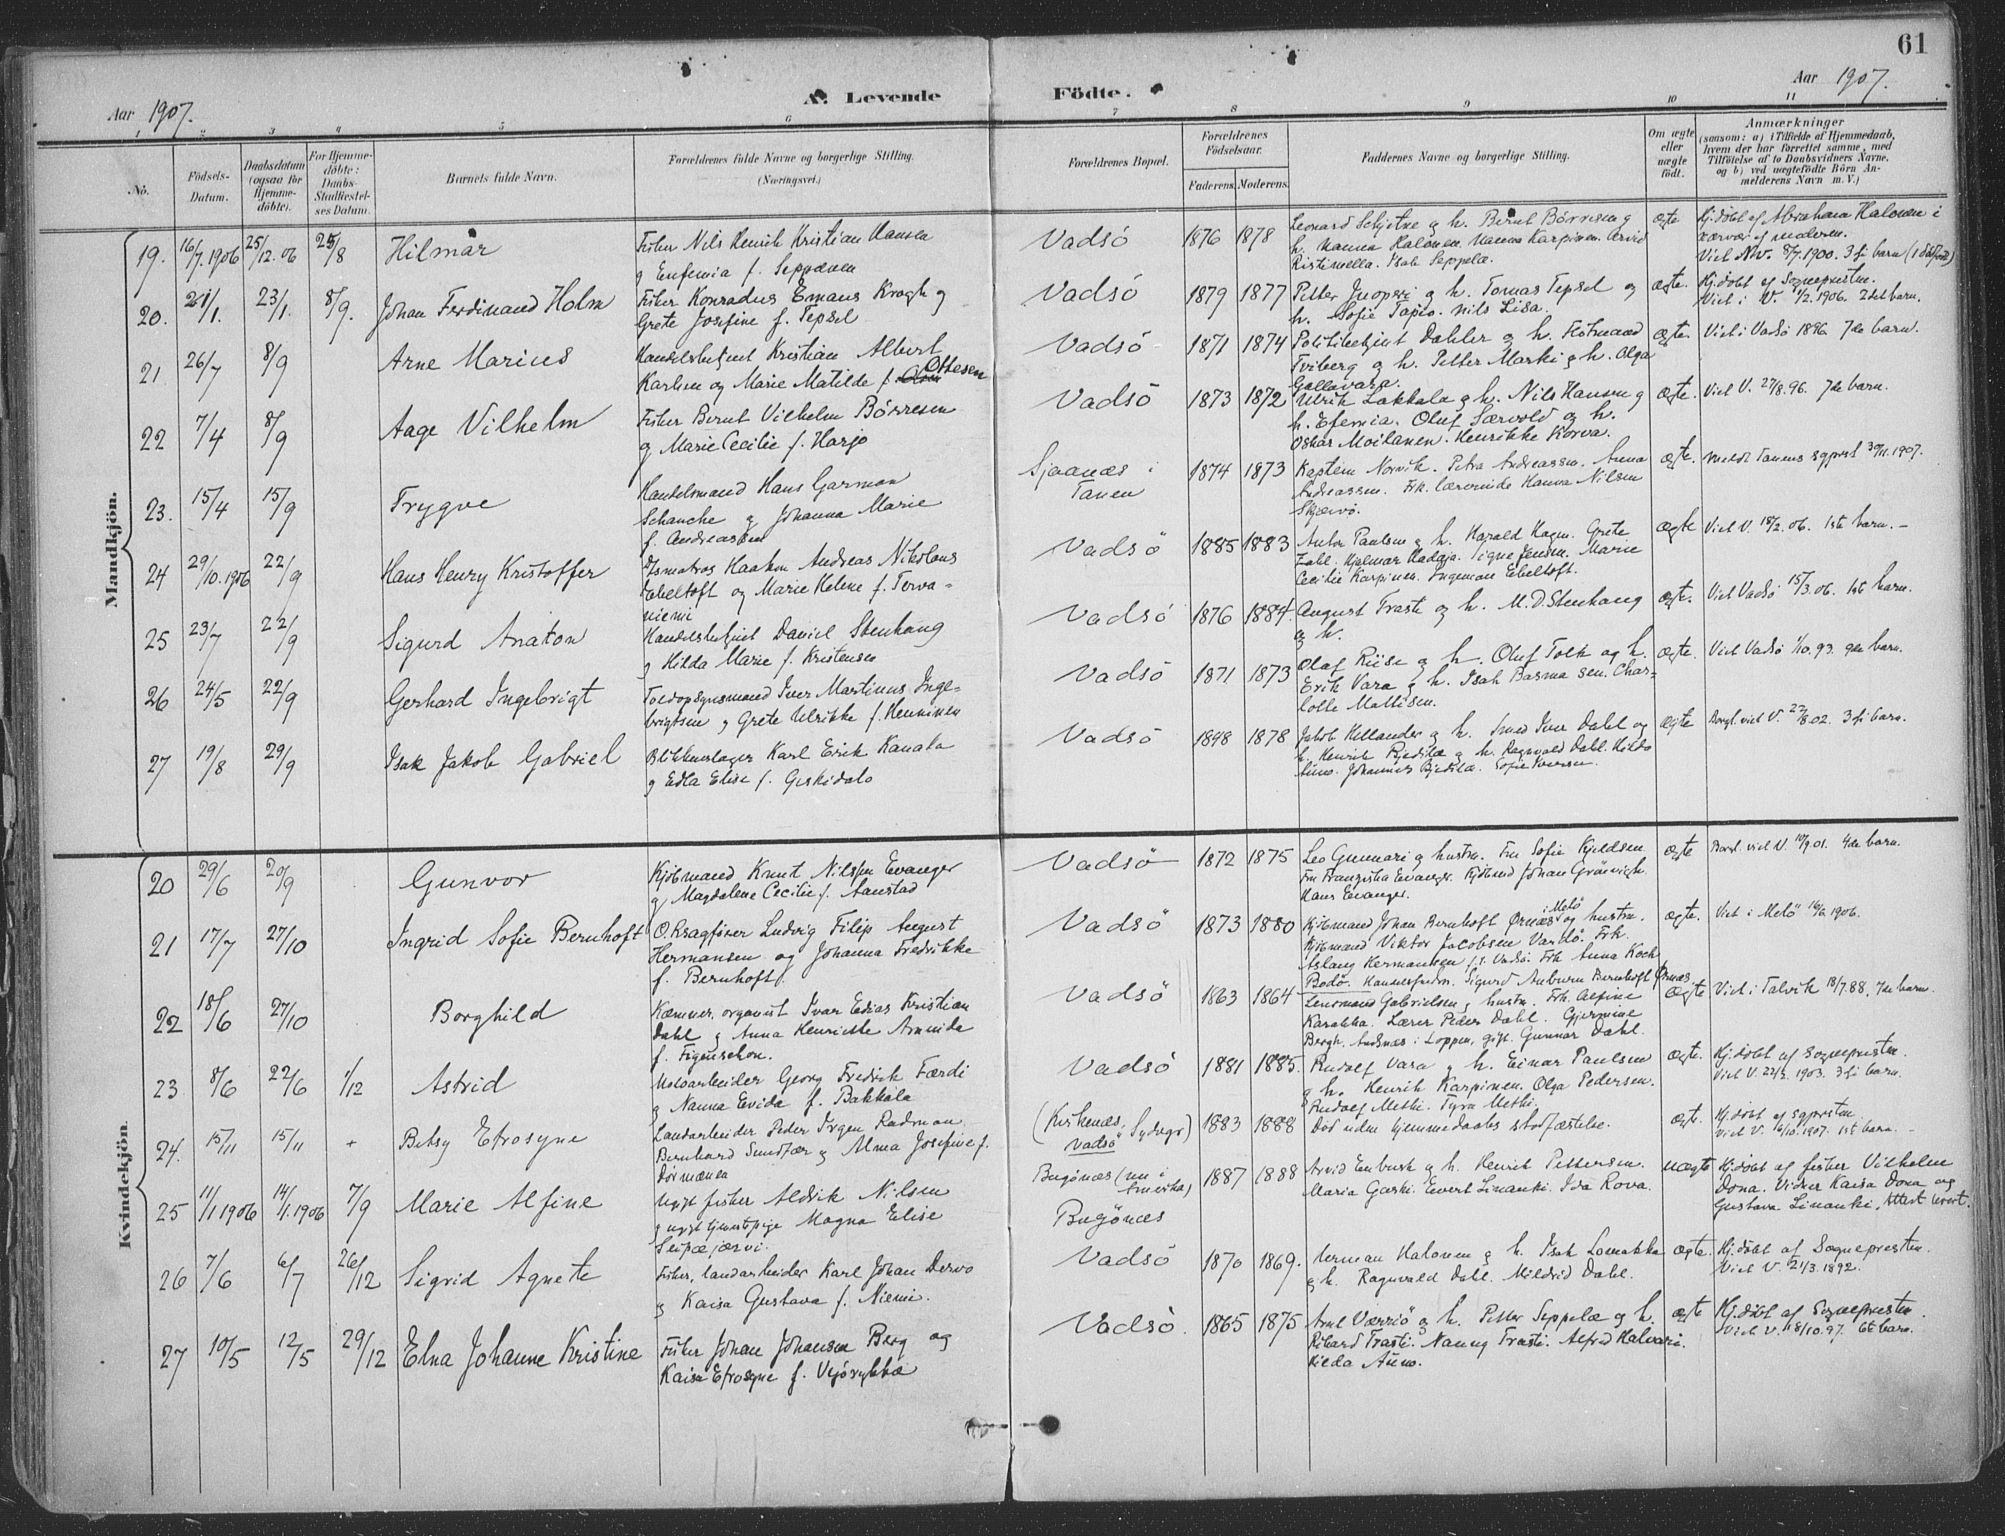 61
Aar 1907.
A. Levende Födte.
Aar 1907.
1 2 3 4 5 6 7 8 9 10 11
No.
Födsels-
Datum.
Daabsdatum
(ogsaa for
Hjemme-
döbte).
For Hjemme-
döbte:
Daabs-
Stadfæstel-
ses Datum.
Barnets fulde Navn.
Forældrenes fulde Navne og borgerlige Stilling.
(Næringsvei.)
Forældrenes Bopæl.
Forældrenes
Födselsaar.
Faderens. Moderens.
Faddernes Navne og borgerlige Stilling.
Om ægte
eller
uægte
födt.
Anmærkninger
(saasom: a) i Tilfælde af Hjemmedaab,
hvem der har forrettet samme, med
Tilföielse af to Daabsvidners Navne,
og b) ved uægtefödte Börn An-
melderens Navn m. V.)
Mandkjön.
19. 16/7. 1906 25/12. 06 25/8 Hilmar
Fisker Nils Henrik Kristian Hansen
og Eufemia f. Seppænen
Vadsö 1876 1878
Leonard Schjötne og h. Bernt Börresen og
h. Hanna Halonen. Hanna Karpinen. Arvid
Ristinella. Isak Seppela.
ægte
Hj.döbt af Abraham Halonen i
nærvær af moderen.
Viet N.V. 8/7. 1900. 3die barn
20. 21/1. 23/1. 8/9. Johan Ferdinand Holm
Fisker Konradus Emaus Krogh og
Grete Josefine f. Tepsel
Vadsö 1879 1877
Petter Juopperi og h. Tomas Tepsel og
h. Sofie Tapio. Nils Lisa.
ægte.
Hj.döbt af Sognepresten.
Viet i V. 11/2. 1906. 2det barn.
21. 26/7 8/9 Arne Marius
Handelsbetjent Kristian Albert
Karlsen og Marie Matilde f. Ottesen
Vadsö 1871 1874
Politibetjent Dahler og h. Flötmand
Tviberg og h. Petter Marski og h. Olga
Gallavara.
ægte.
Viet i Vadsö 1896 7de barn.
22 7/4 8/9 Aage Vilhelm
Fisker Bernt Vilhelm Börresen
og Marie Cecilie f. Harjo
Vadsö 1873 1872
Ulrik Lakkala og h. Nils Hansen og
h. Efemia. Oluf Særvold og h.
Oskar Moilanen. Henrikke Korva.
ægte.
Viet V. 27/8. 96. 7de barn.
23. 15/4 15/9 Trygve
Handelsmand Hans Garmon
Schanche og Johanna Marie
f. Andreassen
Sjaanæs i
Tanen
1874 1873
Kaptein Norvik. Petra Andreassen. Anna
Andreassen. Frk. lærerinde Hanna Nilsen
Skjærvö.
ægte.
meldt Tanens sgprest 30/11. 1907.
24 29/10. 1906 22/9 Hans Henry Kristoffer
Ismatros Haakon Andreas Nikolaus
Ebeltoft og Marie Helene f. Terva-
niemi
Vadsö 1885 1883
Anton Paulsen og h. Harald Hagen. Grete
Zahl. Hjelmar Hadaja. Signe Jensen. Marie
Cecilie Karpinen. Ingeman Ebeltoft.
ægte
Viet V. 18/2. 06. 1ste barn. –
25 23/7 22/9 Sigurd Anaton
Handelsbetjent Daniel Stenhaug
og Hilda Marie f. Kristensen
Vadsö 1876 1884.
August Traste og h. M. D. Stenhaug
og h.
ægte.
Viet Vadsö 15/3. 06. 1ste barn.
26 24/5 22/9 Gerhard Ingebrigt
Toldopsynsmand Iver Martinus Inge-
brigtsen og Grete Ulrikke f. Henninen
Vadsö 1871 1873
Olaf Riise og h. Oluf Tolk og h.
Erik Vara og h. Isak Basma sen. Char-
lotte Mattisen.
ægte.
Viet Vadsö 1/10. 93. 9de barn.
27 19/8 29/9 Isak Jakob Gabriel
Blikkenslager Karl Erik Kanala
og Edla Elise f. Geskidalo
Vadsö 1848 1878
Jakob Hellander og h. Smed Iver Dahl og
h. Henrik Bjedila og h. Ragnvald Dahl. Hilda
Auno. Johannes Bjedila. Sofie Iversen.
ægte
Borgl. viet V. 27/8. 02. 3die barn.
Kvindekjön.
20 29/6 20/9 Gunvor
Kjöbmand Knut Nilsen Evanger
og Magdalene Cecilie f. Aanstad
Vadsö 1872 1875
Leo Gunnari og hustru. Fru Sofie Kjeldsen
Fru Franziska Evanger. Kjöbmd Johan Grönvigh.
Hans Evanger.
ægte
Borgl. viet V. 10/9. 01. 4de barn.
21 17/7 27/10 Ingrid Sofie Bernhoft
O.Kragförer Ludvig Filip August
Hermansen og Johanna Fredrikke
f. Bernhoft.
Vadsö 1873 1880
Kjöbmand Johan Bernhoft Ørnæs i Melö og hustru.
Kjöbmand Viktor Jacobsen Vardö. Frk.
Aslaug Hermansen f. t. Vadsö Frk Anna Koch
Bodö. Handelsfuldm. Sigurd Anburn Bernhoft Ørnæs
ægte.
Viet i Melö 16/6. 1906.
22 18/6 27/10 Borghild
Kæmner, organist Ivar Edias Kristian
Dahl og Anna Henriette Aminda
f. Figenschou.
Vadsö 1863 1864
Lensmand Gabrielsen og hustru. Frk. Alfine
Karakka. Lærer Peder Dahl. Gjermine
Bergh, Andsnæs i Loppen, gift. Gunnar Dahl.
ægte
Viet i Talvik 18/7. 88. 7de barn.
23 8/6 22/6 1/12 Astrid
Motoarbeider Georg Fredrik Færdi
og Nanna Evida f. Bakkala
Vadsö 1881 1885.
Rudolf Vara og h. Einar Paulsen
og h. Henrik Karpinen. Olga Pedersen.
Rudolf Metti. Tyra Metti.
ægte.
Hj.döbt af Sognepresten.
Viet V. 22/3. 1903. 3die barn.
24. 15/11 15/11 + Betsy Efrosyne
Landarbeider Peder Jrgen Radman
Bernhard Sundfær og Alma Josefine f.
Dörmænen
(Kirkenæs, Sydvgr)
Vadsö
1883 1888
Död uden hjemmedaabs stadfæstelse.
ægt.
Hj.döbt af Sgpresten.
Viet V. 6/10. 1907. 1st barn. –
25 11/1 1906 14/1. 1906 7/9 Marie Alfine
Ugift fisker Aldrik Nilsen
og ugift tjenestpige Magna Elise
Seipæjærvi.
Bugönæs (nu i
Amerika)
Bugönæs
1887 1888
Arvid Enbusk og h. Henrik Pettersen.
Maria Gaski. Evert Linanki. Ida Rova.
uægte
Hj.döbt af fisker Vilhelm
Dona. Vidner Kaisa Dona og
Gustava Linanki.
26 7/6 6/7 26/12 Sigrid Agnete
Fisker, landarbeider Karl Johan Dervo
og Kaisa Gustava f. Niemi.
Vadsö 1870 1869.
Herman Halonen og h. Isak Lomakka
og h. Ragnvald Dahl. Mildrid Dahl.
ægte.
Hj.döbt af Sognepresten.
Viet V. 21/3. 1892.
27 10/5 12/5 29/12 Elna Johanne Kristine
Fisker Johan Johansen Berg og
Kaisa Efrosyne f. Vejörykkæ
Vadsö. 1865 1875
Arnt Værriö og h. Petter Seppela og h.
Rikard Trasti. Nanny Trasti. Alfred Halvari.
Hilda Auno.
ægte
Hj.döbt af Sognepresten
Viet V. 18/10. 97. 6te barn.